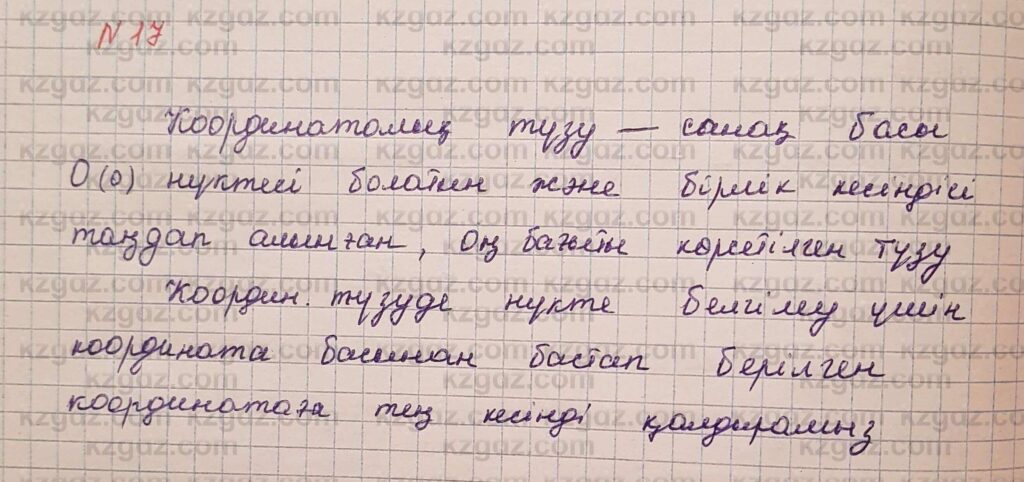 № 17
Координаталық түзу — санақ басы
О(о) нүктесі болатын және бірлік кесіндісі
таңдап алынған, оң бағыты көрсетілген түзу
Координ. түзуде нүкте белгілеу үшін
координата басынан бастап берілген
координатаға тең кесінді қалдырамыз